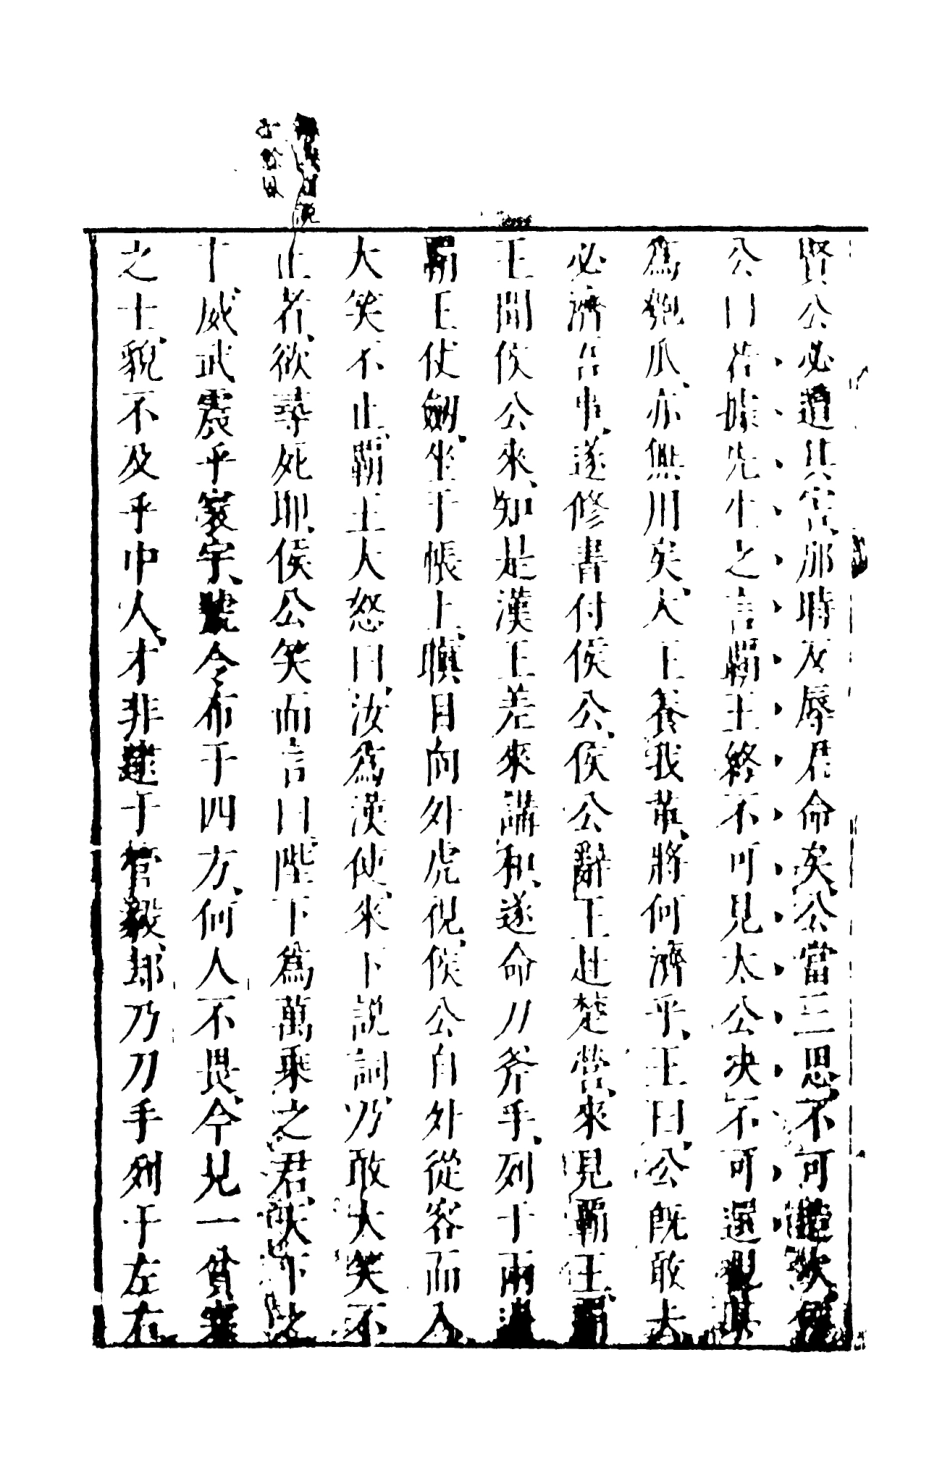 賢公必遭其害那時反辱君命矣公當三思不可造次侯
公曰若據先生之言覇王終不可見太公决不可還視某
為匏瓜亦無用矣大王養我輩將何濟乎王曰公既敢去
必濟吾事遂修書付侯公侯公辭王赴楚營來見覇王覇
王聞侯公來知是漢王差來講和遂命刀斧手列于兩邊
覇王仗劒坐于帳上瞋目向外虎視侯公自外從容而入
大笑不止覇王大怒曰汝為漢使來下說詞乃敢大笑不
止者欲尋死耶侯公笑而言曰陛下為萬乘之君天下之
主威武震乎寰宇號令布于四方何人不畏今見一貧寒
之士貌不及乎中人才非逮于管毅却乃刀手列于左右